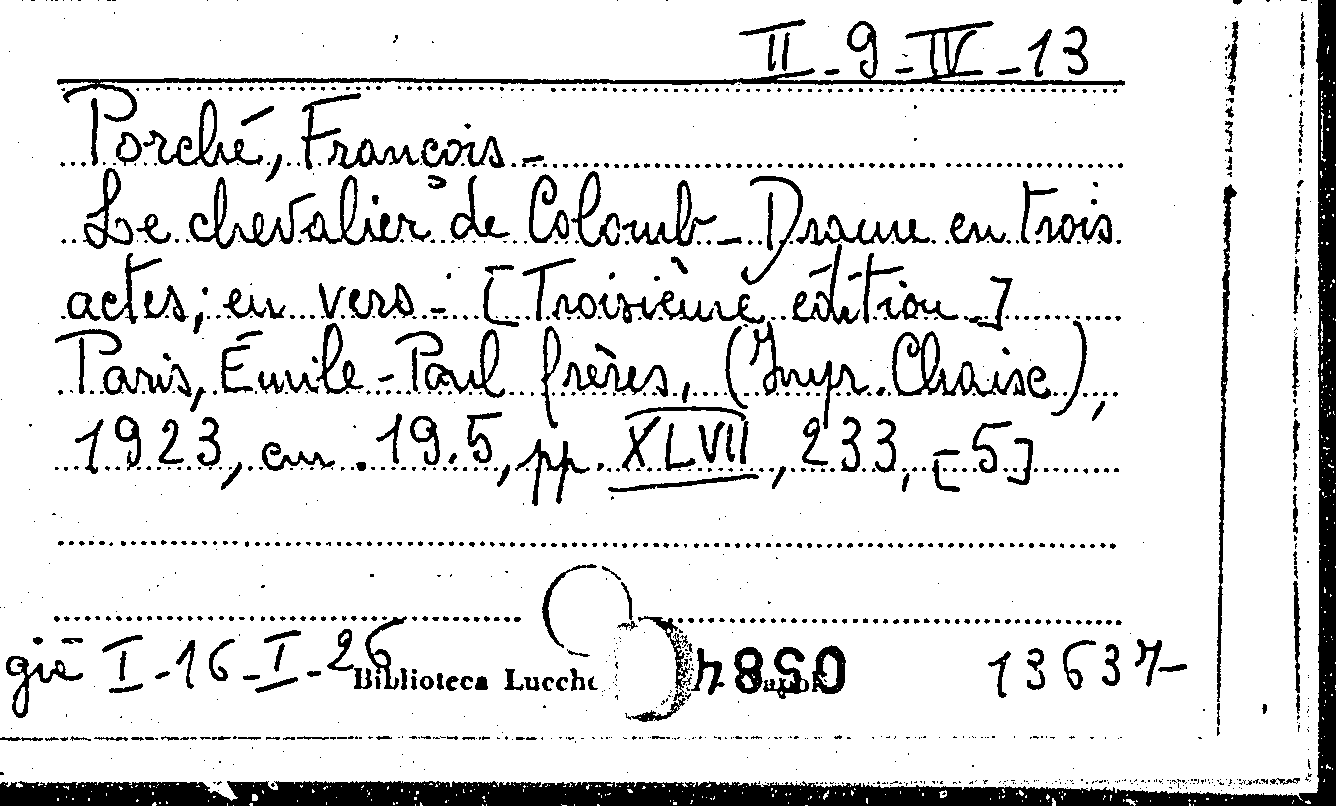 II-9-IV-13
Porché, François -
Le chevalier de Colomb - Drame en trois
actes, en vers - [Troisième édition]
Paris, Émile-Paul frères, (Impr. Chaise),
1923, cm. 19.5, pp. XLVII, 233, [5]
già I-16-I-26 Biblioteca 13637